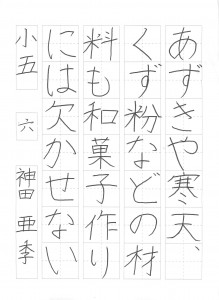 あずきや寒天、
くず粉などの材
料も和菓子作り
には欠かせない
小五 六 神田亜季